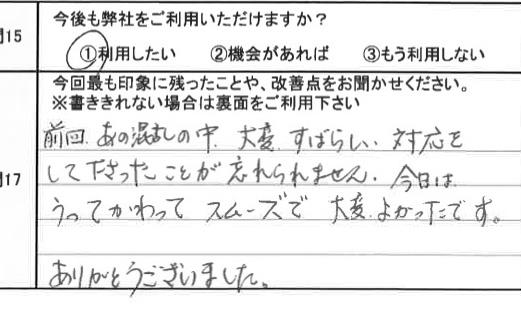 問15
今後も弊社をご利用いただけますか？
①利用したい ②機会があれば ③もう利用しない
問17
今回最も印象に残ったことや、改善点をお聞かせください。
※書ききれない場合は裏面をご利用下さい
前回、あの混乱の中、大変すばらしい対応を
して下さったことが忘れられません。今日は
うってかわってスムーズで大変よかったです。
ありがとうございました。